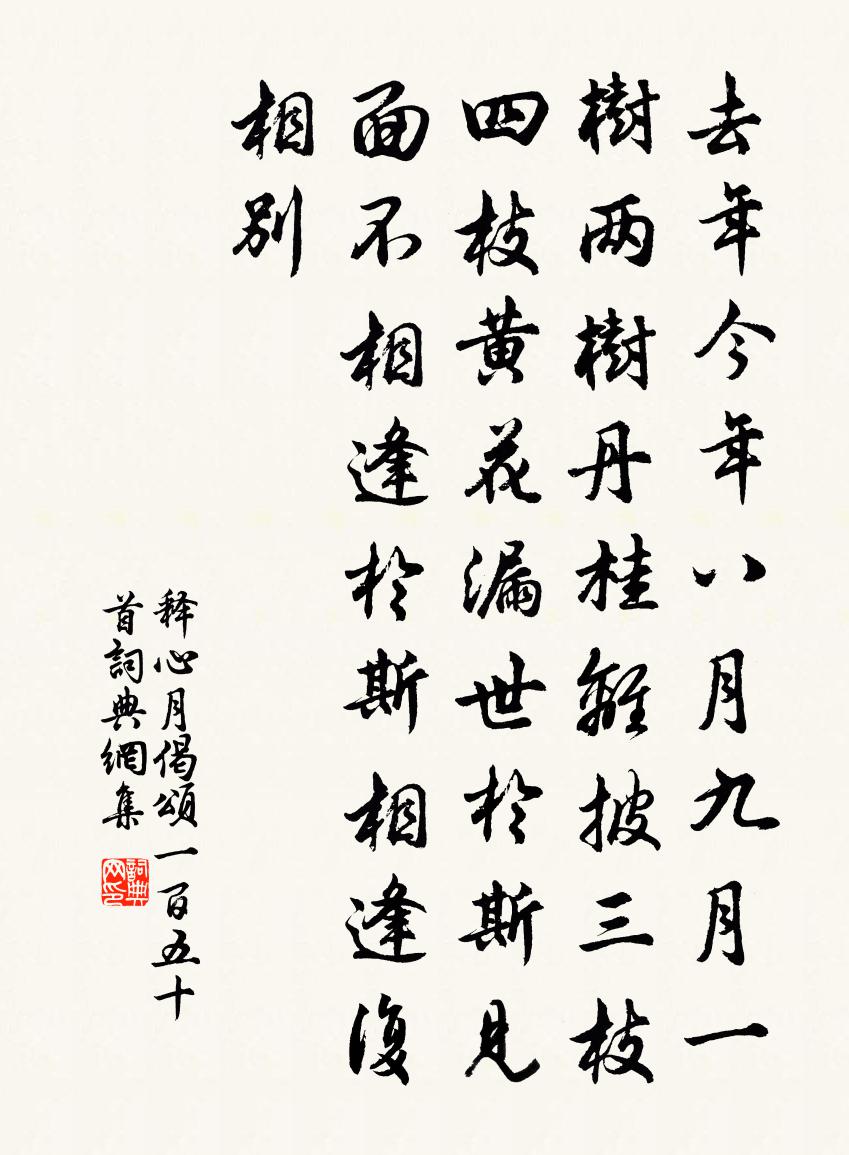 去年今年八月九月一
樹两樹丹桂離披三枝
四枝黄花漏世於斯見
面不相逢於斯相逢復
相别
释心月偈頌一百五十
首詞典網集
詞典網印